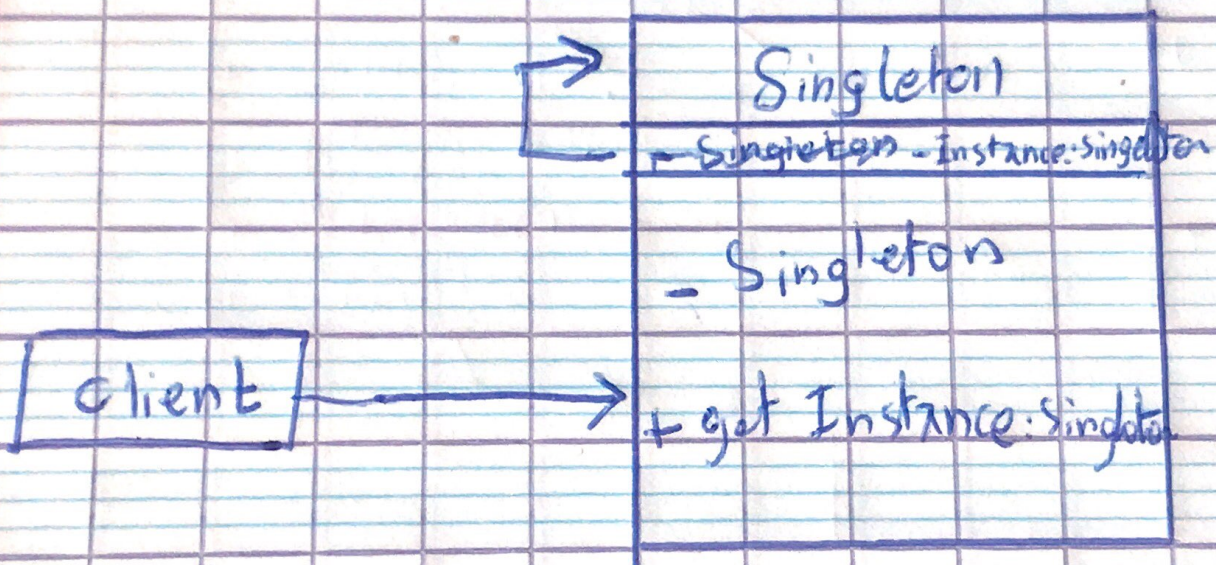 Singleton
- Instance: Singelton
- Singleton
Client
+ get Instance: Singloton